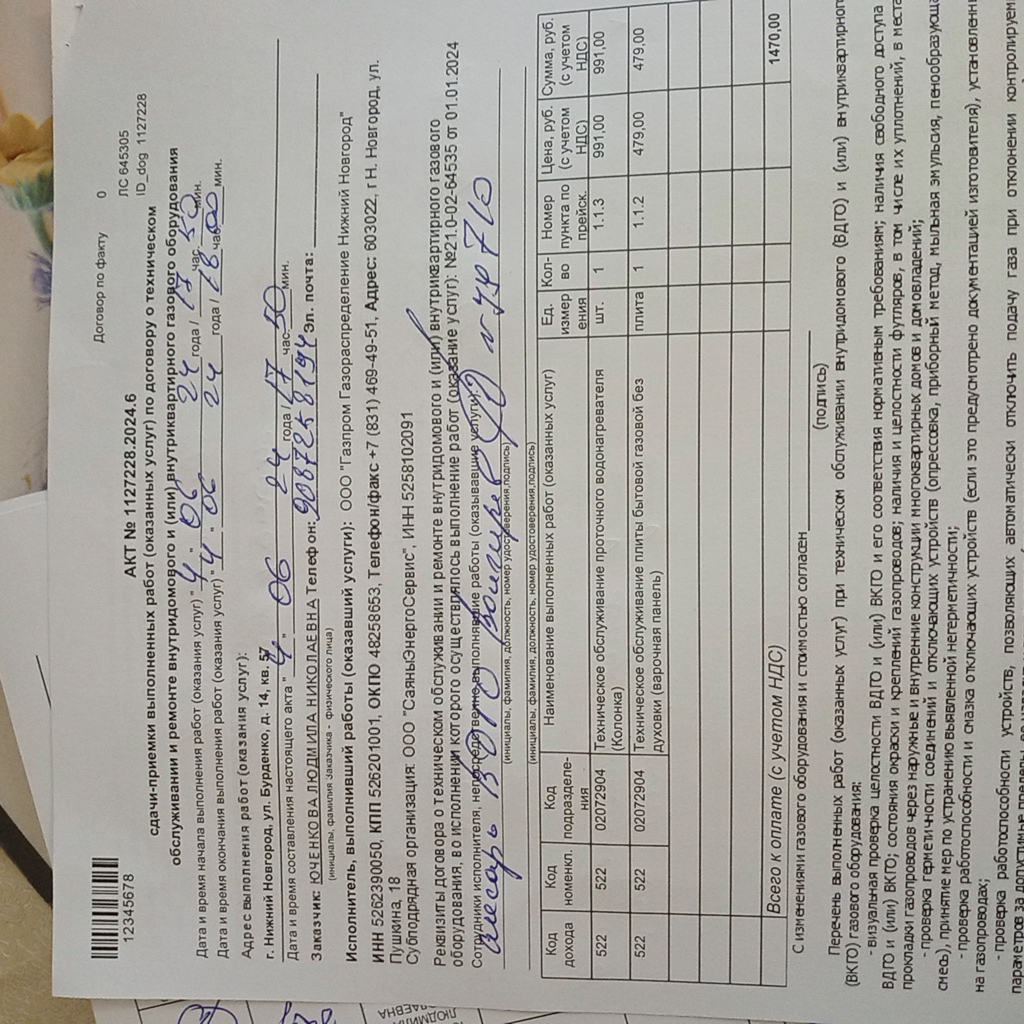 12345678
Договор по факту 0
АКТ № 1127228.2024.6
ЛС 645305
сдачи-приемки выполненных работ (оказанных услуг) по договору о техническом
ID_dog 1127228
обслуживании и ремонте внутридомового и (или) внутриквартирного газового оборудования
Дата и время начала выполнения работ (оказания услуг) " 4 " 06 24 года / 17 час. 50 мин.
Дата и время окончания выполнения работ (оказания услуг) " 4 " 06 24 года / 18 час. 00 мин.
Адрес выполнения работ (оказания услуг):
г. Нижний Новгород, ул. Бурденко, д. 14, кв. 57
Дата и время составления настоящего акта " 4 " 06 24 года / 17 час 50 мин.
Заказчик: ЮЧЕНКОВА ЛЮДМИЛА НИКОЛАЕВНА Телефон: 9087258194 Эл. почта:
(инициалы, фамилия Заказчика - физического лица)
Исполнитель, выполнивший работы (оказавший услуги): ООО "Газпром Газораспределение Нижний Новгород"
ИНН 5262390050, КПП 526201001, ОКПО 48258653, Телефон/факс +7 (831) 469-49-51, Адрес: 603022, г Н. Новгород, ул.
Пушкина, 18
Субподрядная организация: ООО "СаяныЭнергоСервис", ИНН 5258102091
Реквизиты договора о техническом обслуживании и ремонте внутридомового и (или) внутриквартирного газового
оборудования, во исполнении которого осуществлялось выполнение работ (оказание услуг): №21.0-02-64535 от 01.01.2024
Сотрудники исполнителя, непосредственно выполнявшие работы (оказывавшие услуги):
слесарь ВДГО
(инициалы, фамилия, должность, номер удостоверения,подпись)
(инициалы, фамилия, должность, номер удостоверения,подпись)
Код дохода Код номенкл. Код подразделе-ния Наименование выполненных работ (оказанных услуг) Ед. измерения Кол-во Номер пункта по прейск. Цена, руб. (с учетом НДС) Сумма, руб. (с учетом НДС)
522 522 02072904 Техническое обслуживание проточного водонагревателя (Колонка) шт. 1 1.1.3 991,00 991,00
522 522 02072904 Техническое обслуживание плиты бытовой газовой без духовки (варочная панель) плита 1 1.1.2 479,00 479,00
Всего к оплате (с учетом НДС) 1470,00
С изменениями газового оборудования и стоимостью согласен
(подпись)
Перечень выполненных работ (оказанных услуг) при техническом обслуживании внутридомового (ВДГО) и (или) внутриквартирного
(ВКГО) газового оборудования:
- визуальная проверка целостности ВДГО и (или) ВКГО и его соответствия нормативным требованиям; наличия свободного доступа
ВДГО и (или) ВКГО; состояния окраски и креплений газопроводов; наличия и целостности футляров, в том числе их уплотнений, в места
прокладки газопроводов через наружные и внутренние конструкции многоквартирных домов и домовладений;
- проверка герметичности соединений и отключающих устройств (опрессовка, приборный метод, мыльная эмульсия, пенообразующа
смесь), принятие мер по устранению выявленной негерметичности;
- проверка работоспособности и смазка отключающих устройств (если это предусмотрено документацией изготовителя), установленн
на газопроводах;
- проверка работоспособности устройств, позволяющих автоматически отключить подачу газа при отклонении контролируем